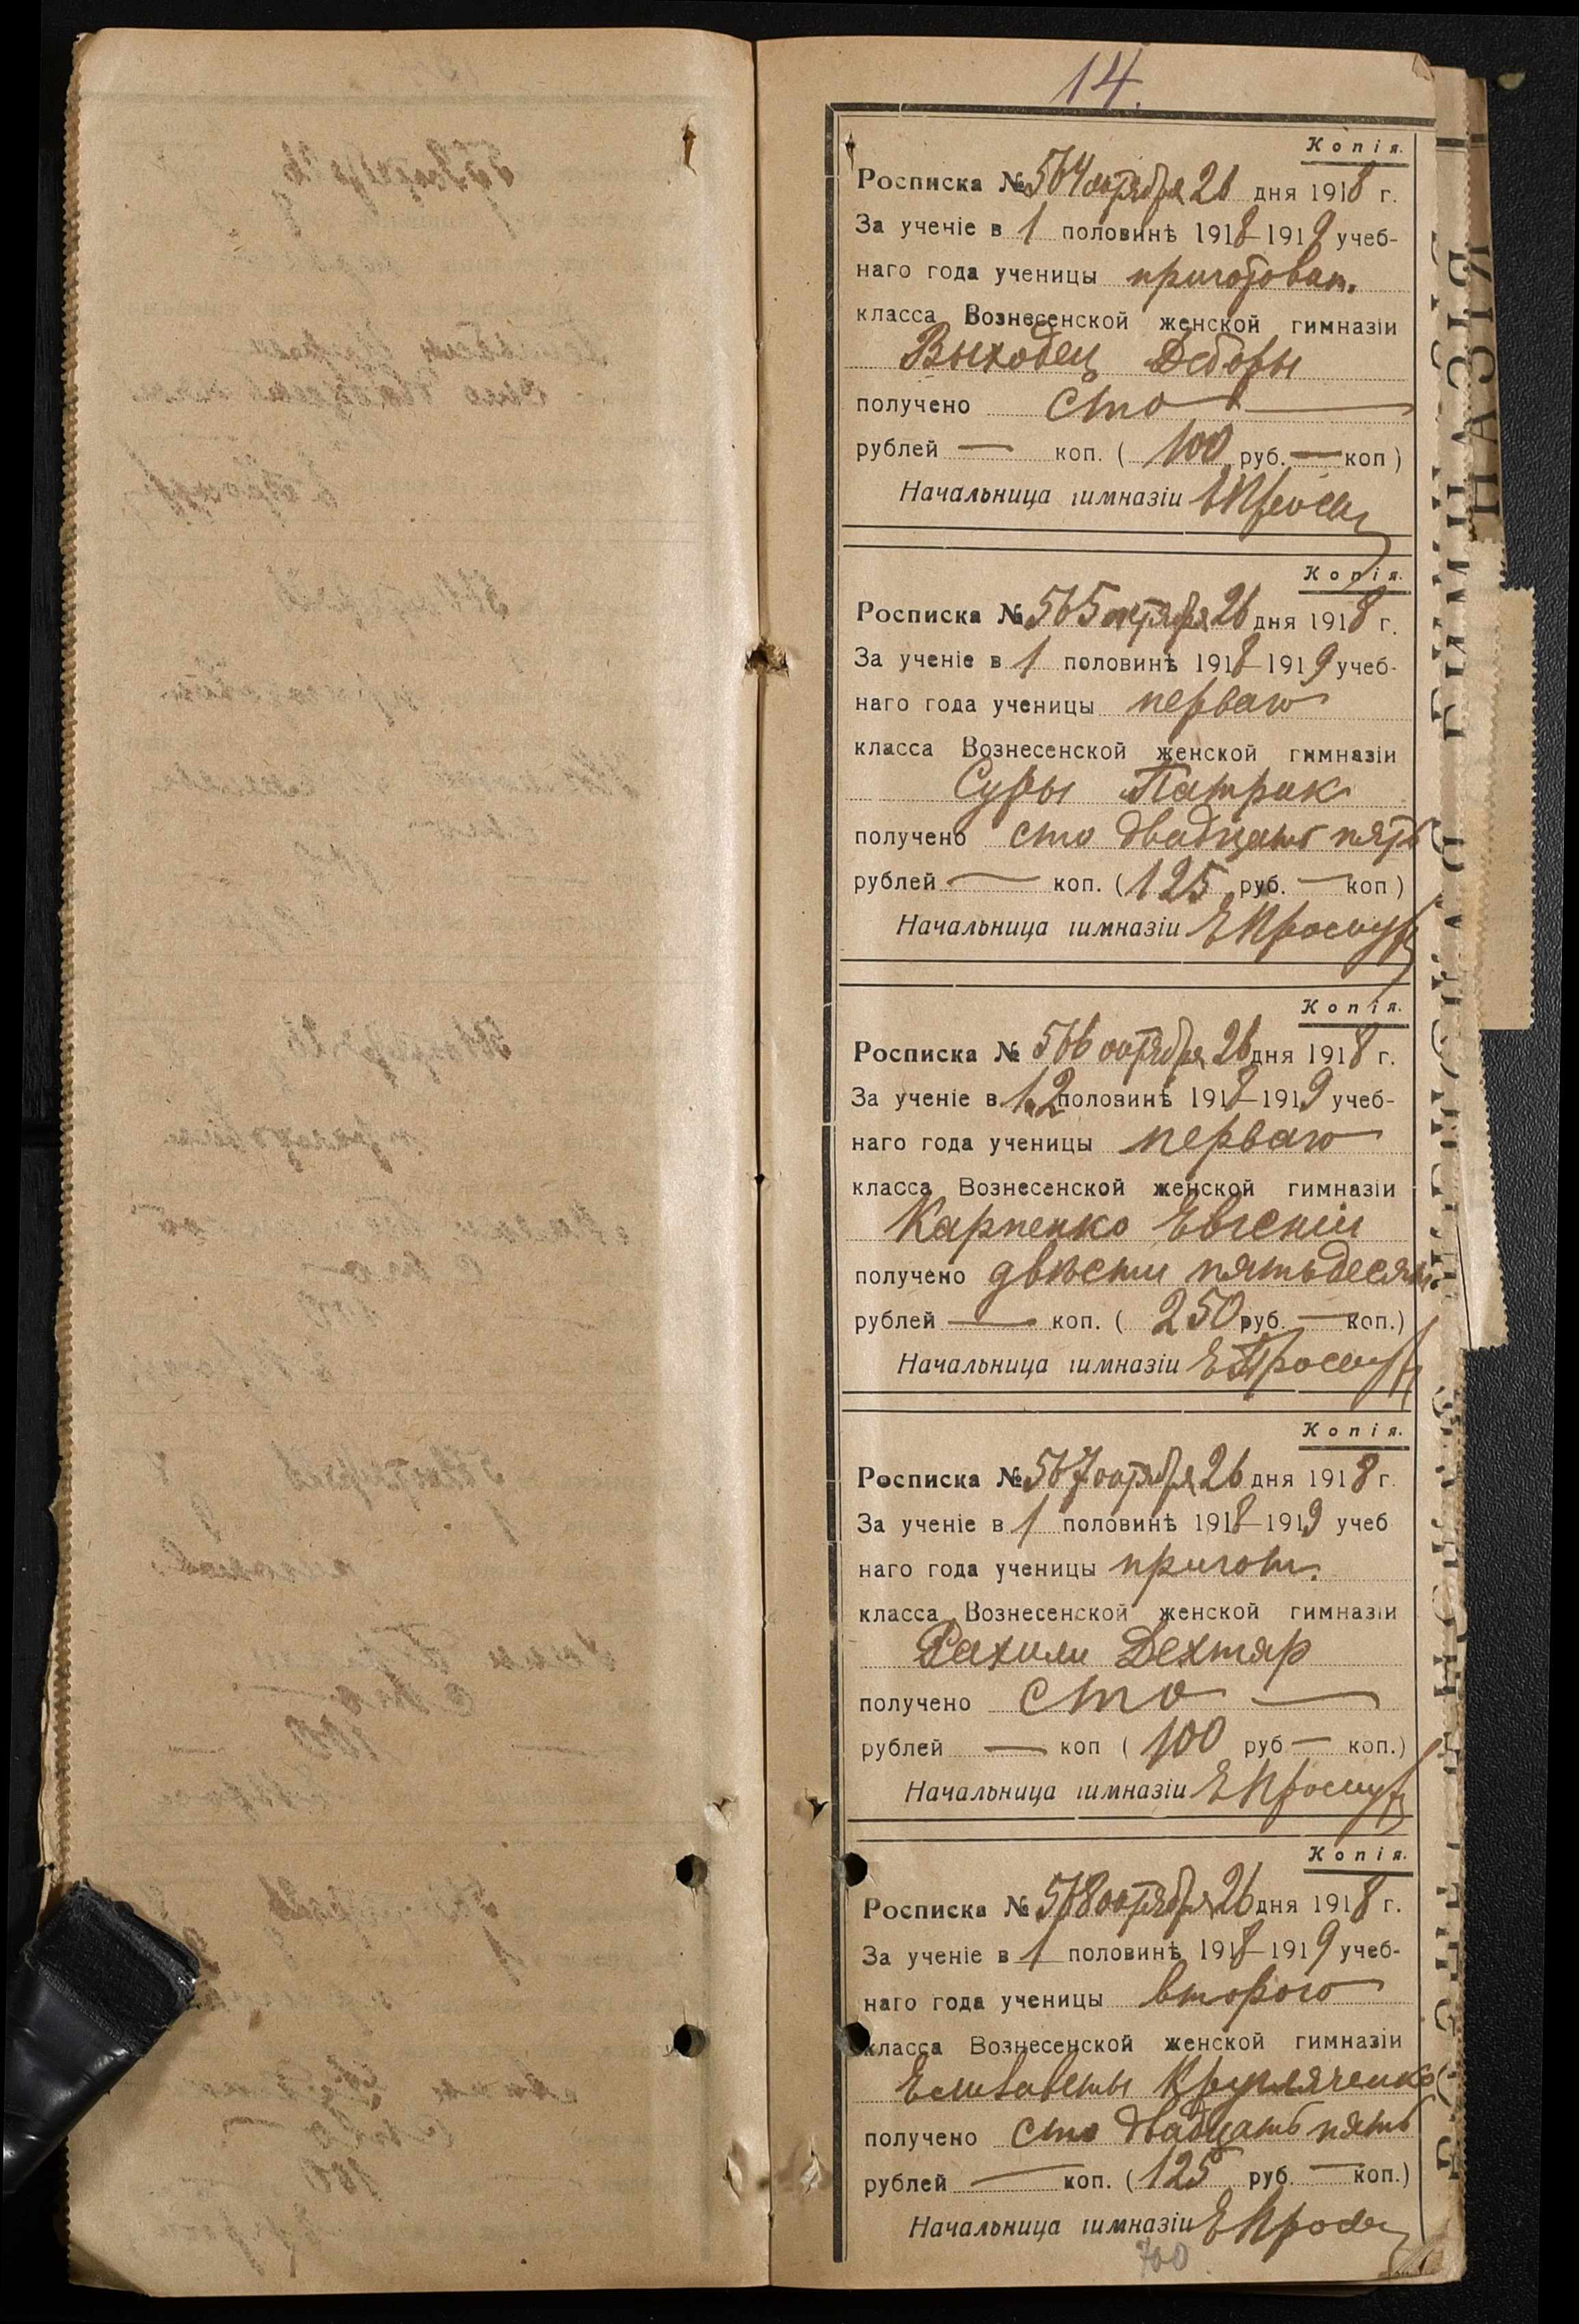 14.
Копія.
Росписка № 564 октября 26 дня 1918 г.
За ученіе в 1 половинѣ 1918–1919 учеб-
наго года ученицы приготовит.
класса Вознесенской женской гимназіи
Выходец Деборы
получено сто —
рублей — коп. ( 100 руб. — коп )
Начальница гимназіи
Копія.
Росписка № 565 октября 26 дня 1918 г.
За ученіе в 1 половинѣ 1918–1919 учеб-
наго года ученицы перваго
класса Вознесенской женской гимназіи
Суры Патрик
получено сто двадцать пять
рублей — коп. ( 125 руб. — коп )
Начальница гимназіи
Копія.
Росписка № 566 октября 26 дня 1918 г.
За ученіе в 1 и 2 половинѣ 1918–1919 учеб-
наго года ученицы перваго
класса Вознесенской женской гимназіи
Карпенко Евгеніи
получено двѣсти пятьдесят
рублей — коп. ( 250 руб. — коп.)
Начальница гимназіи
Копія.
Росписка № 567 октября 26 дня 1918 г.
За ученіе в 1 половинѣ 1918–1919 учеб
наго года ученицы пригот.
класса Вознесенской женской гимназіи
Рахили Дехтяр
получено сто —
рублей — коп ( 100 руб — коп.)
Начальница гимназіи
Копія.
Росписка № 568 октября 26 дня 1918 г.
За ученіе в 1 половинѣ 1918–1919 учеб-
наго года ученицы второго
класса Вознесенской женской гимназіи
Елизаветы
получено сто двадцать пять
рублей — коп. ( 125 руб. — коп.)
Начальница гимназіи
700